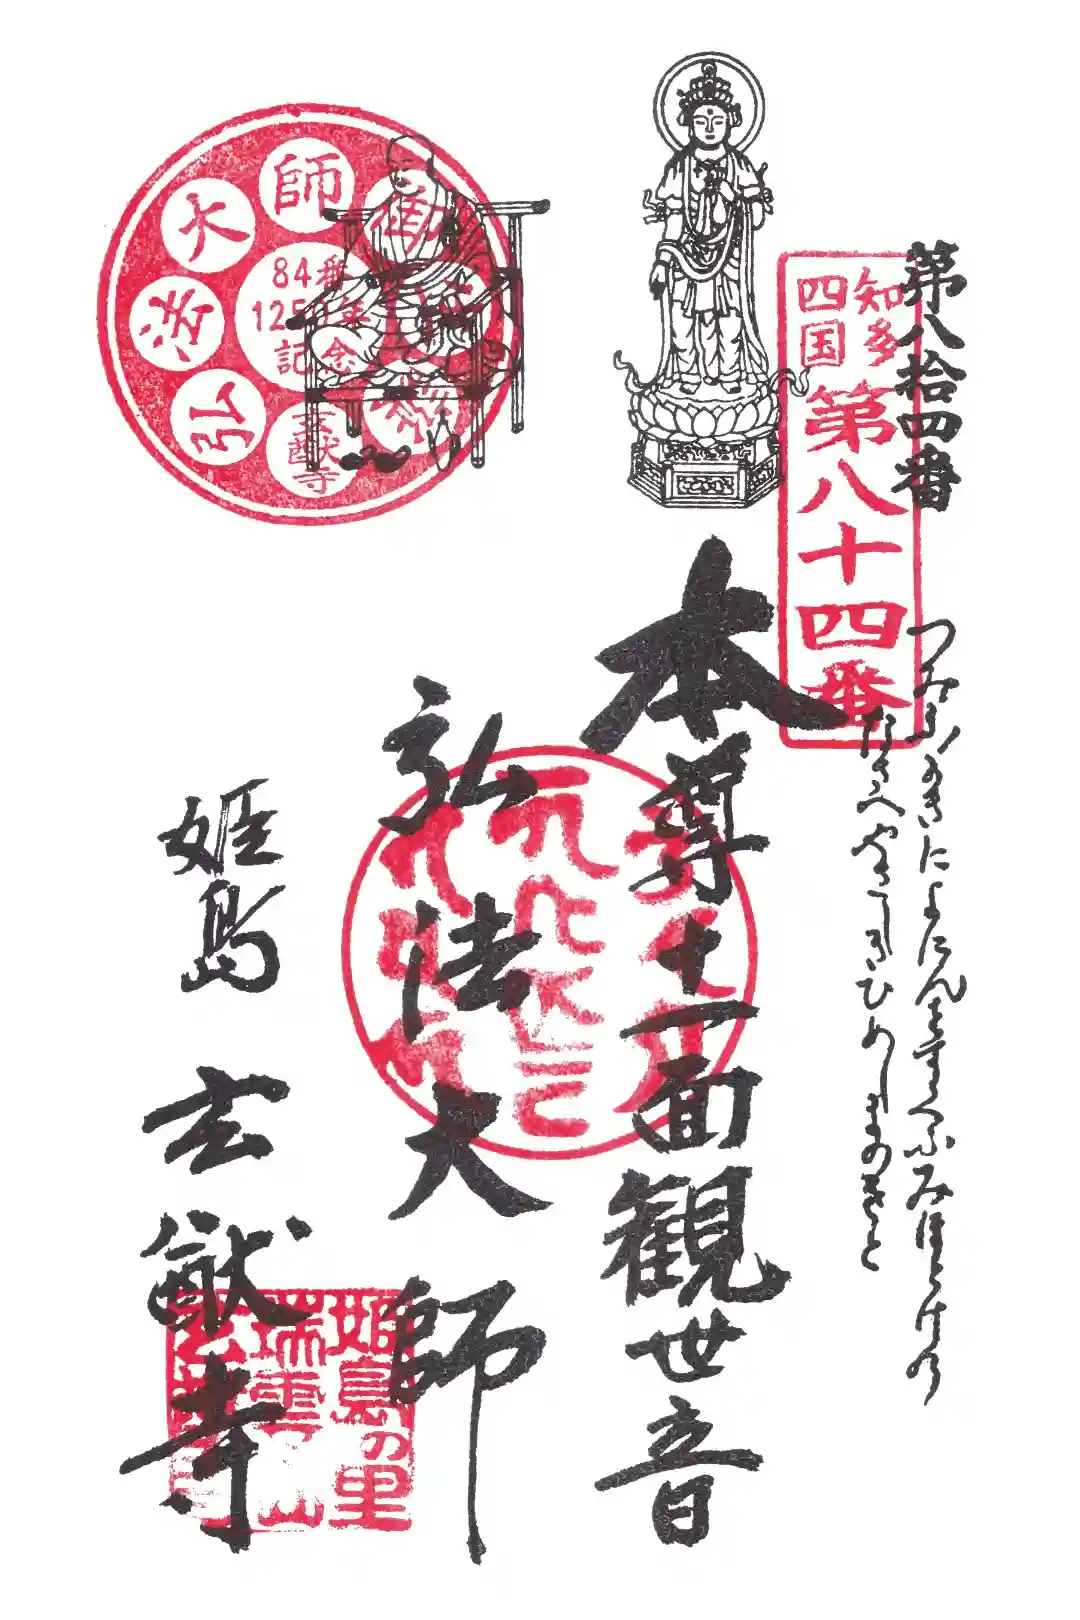 第八拾四番
つみふかきによにんをすくふみほとけの
なさへやさしきひめしまのさと
知多
四国
第八十四番
本尊十一面観世音
弘法大師
姫島 玄猷寺
弘法大師
84番
1250年
記念
玄猷寺
姫島の里
瑞雲山